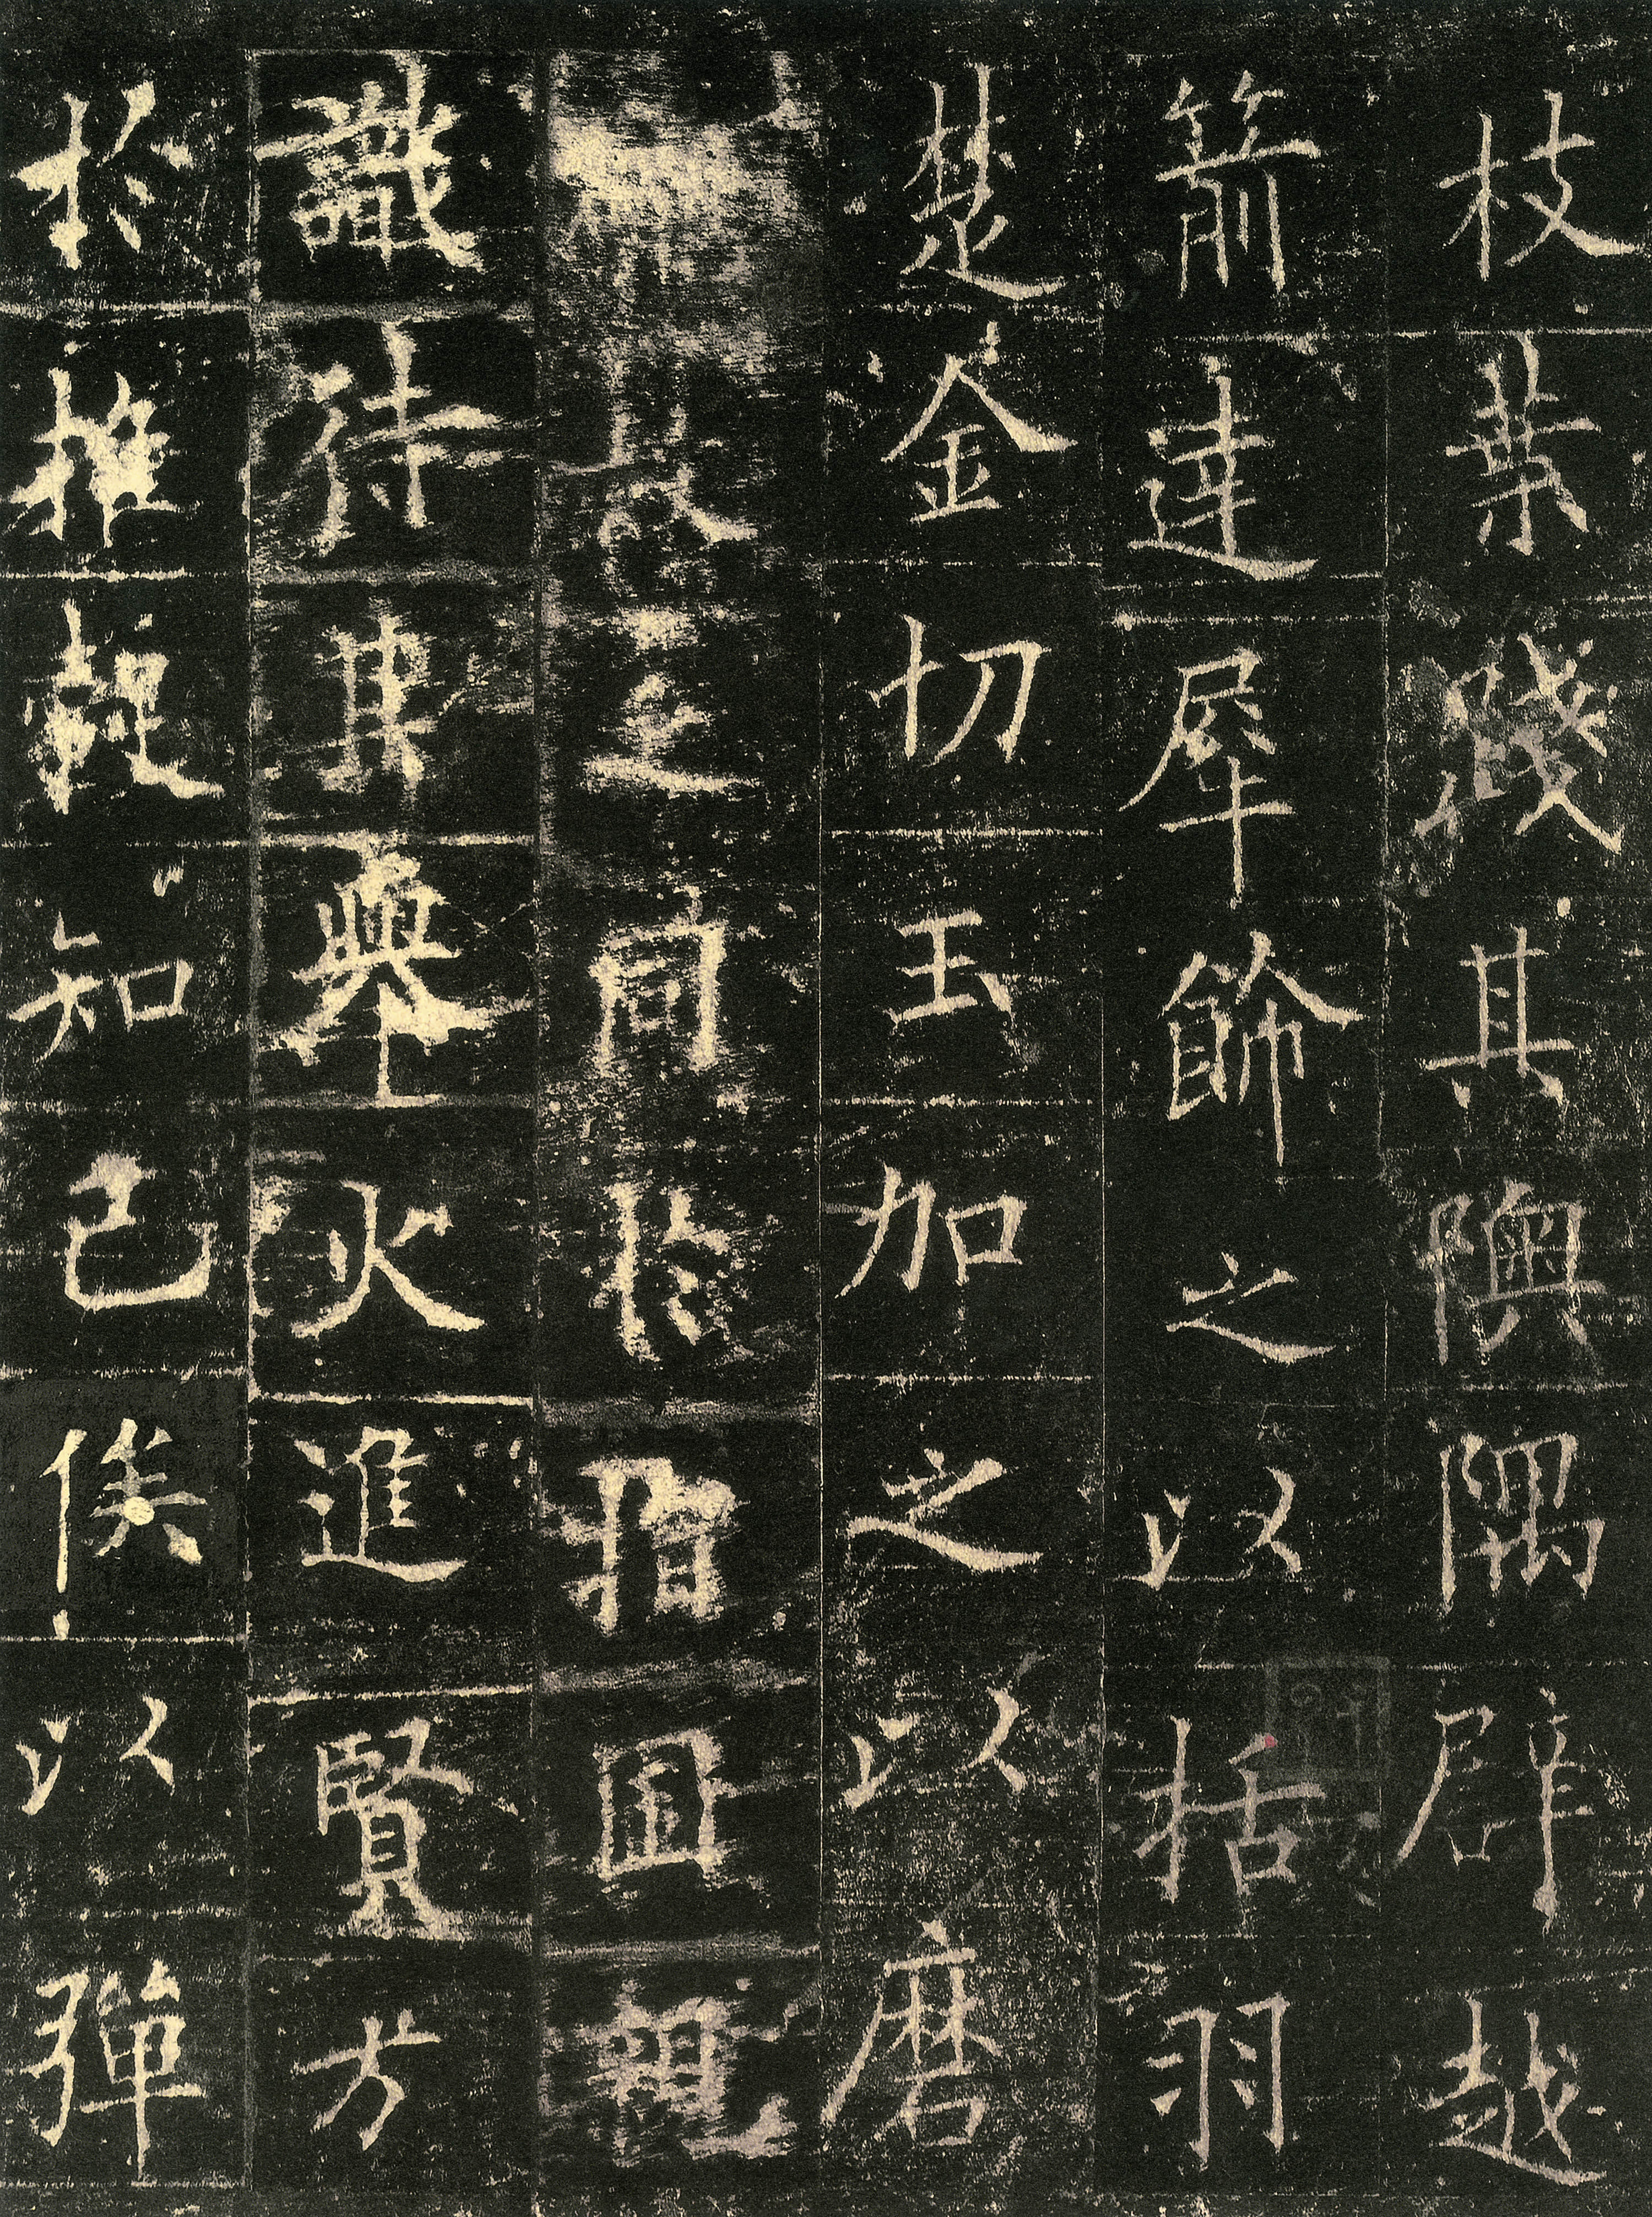 枝葉踐其隩隅辟越
箭達犀飾之以括羽
楚金切玉加之以磨
乏同於指囷親
識待其舉火進賢方
於推轂知己俟以彈